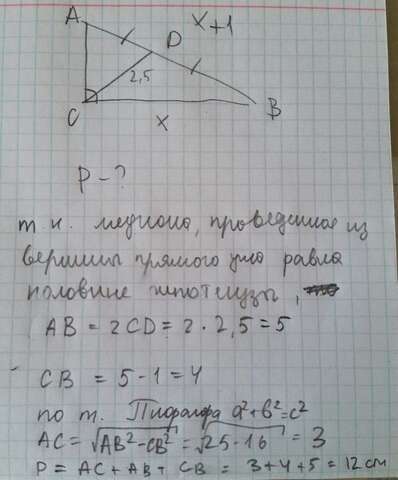 A
D
x+1
2,5
C
x
B
P - ?
т.к. медиана, проведенная из
вершины прямого угла равна
половине гипотенузы,
AB = 2CD = 2·2,5 = 5
CB = 5-1 = 4
по т. Пифагора a²+b²=c²
AC = √AB²-CB² = √25-16 = 3
P = AC + AB + CB = 3+4+5 = 12 см